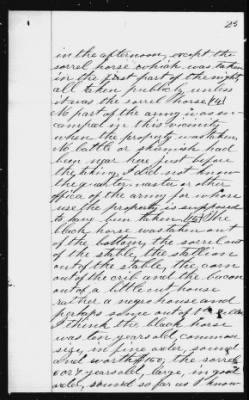 25
in the afternoon, except the
sorrel horse which was taken
in the first part of the night
all taken publicly unless
it was the sorrel horse (4)
No part of the army was en-
camped in this vicinity
when the property was taken
No battle or skirmish had
been near here just before
the taking, I did not know
the quarter master or other
office of the army for whose
use the property is supposed
to have been taken (5) The
black horse was taken out
of the bottom, the sorrel out
of the stable, the stallion
out of the stable, the corn
out of the crib and the bacon
out of a little out house
rather a negro house and
perhaps some out of the
I think the black horse
was years old, common
size, in fine order, sound
and worth the sorrel
years old, large, in good
order, sound so far as I know